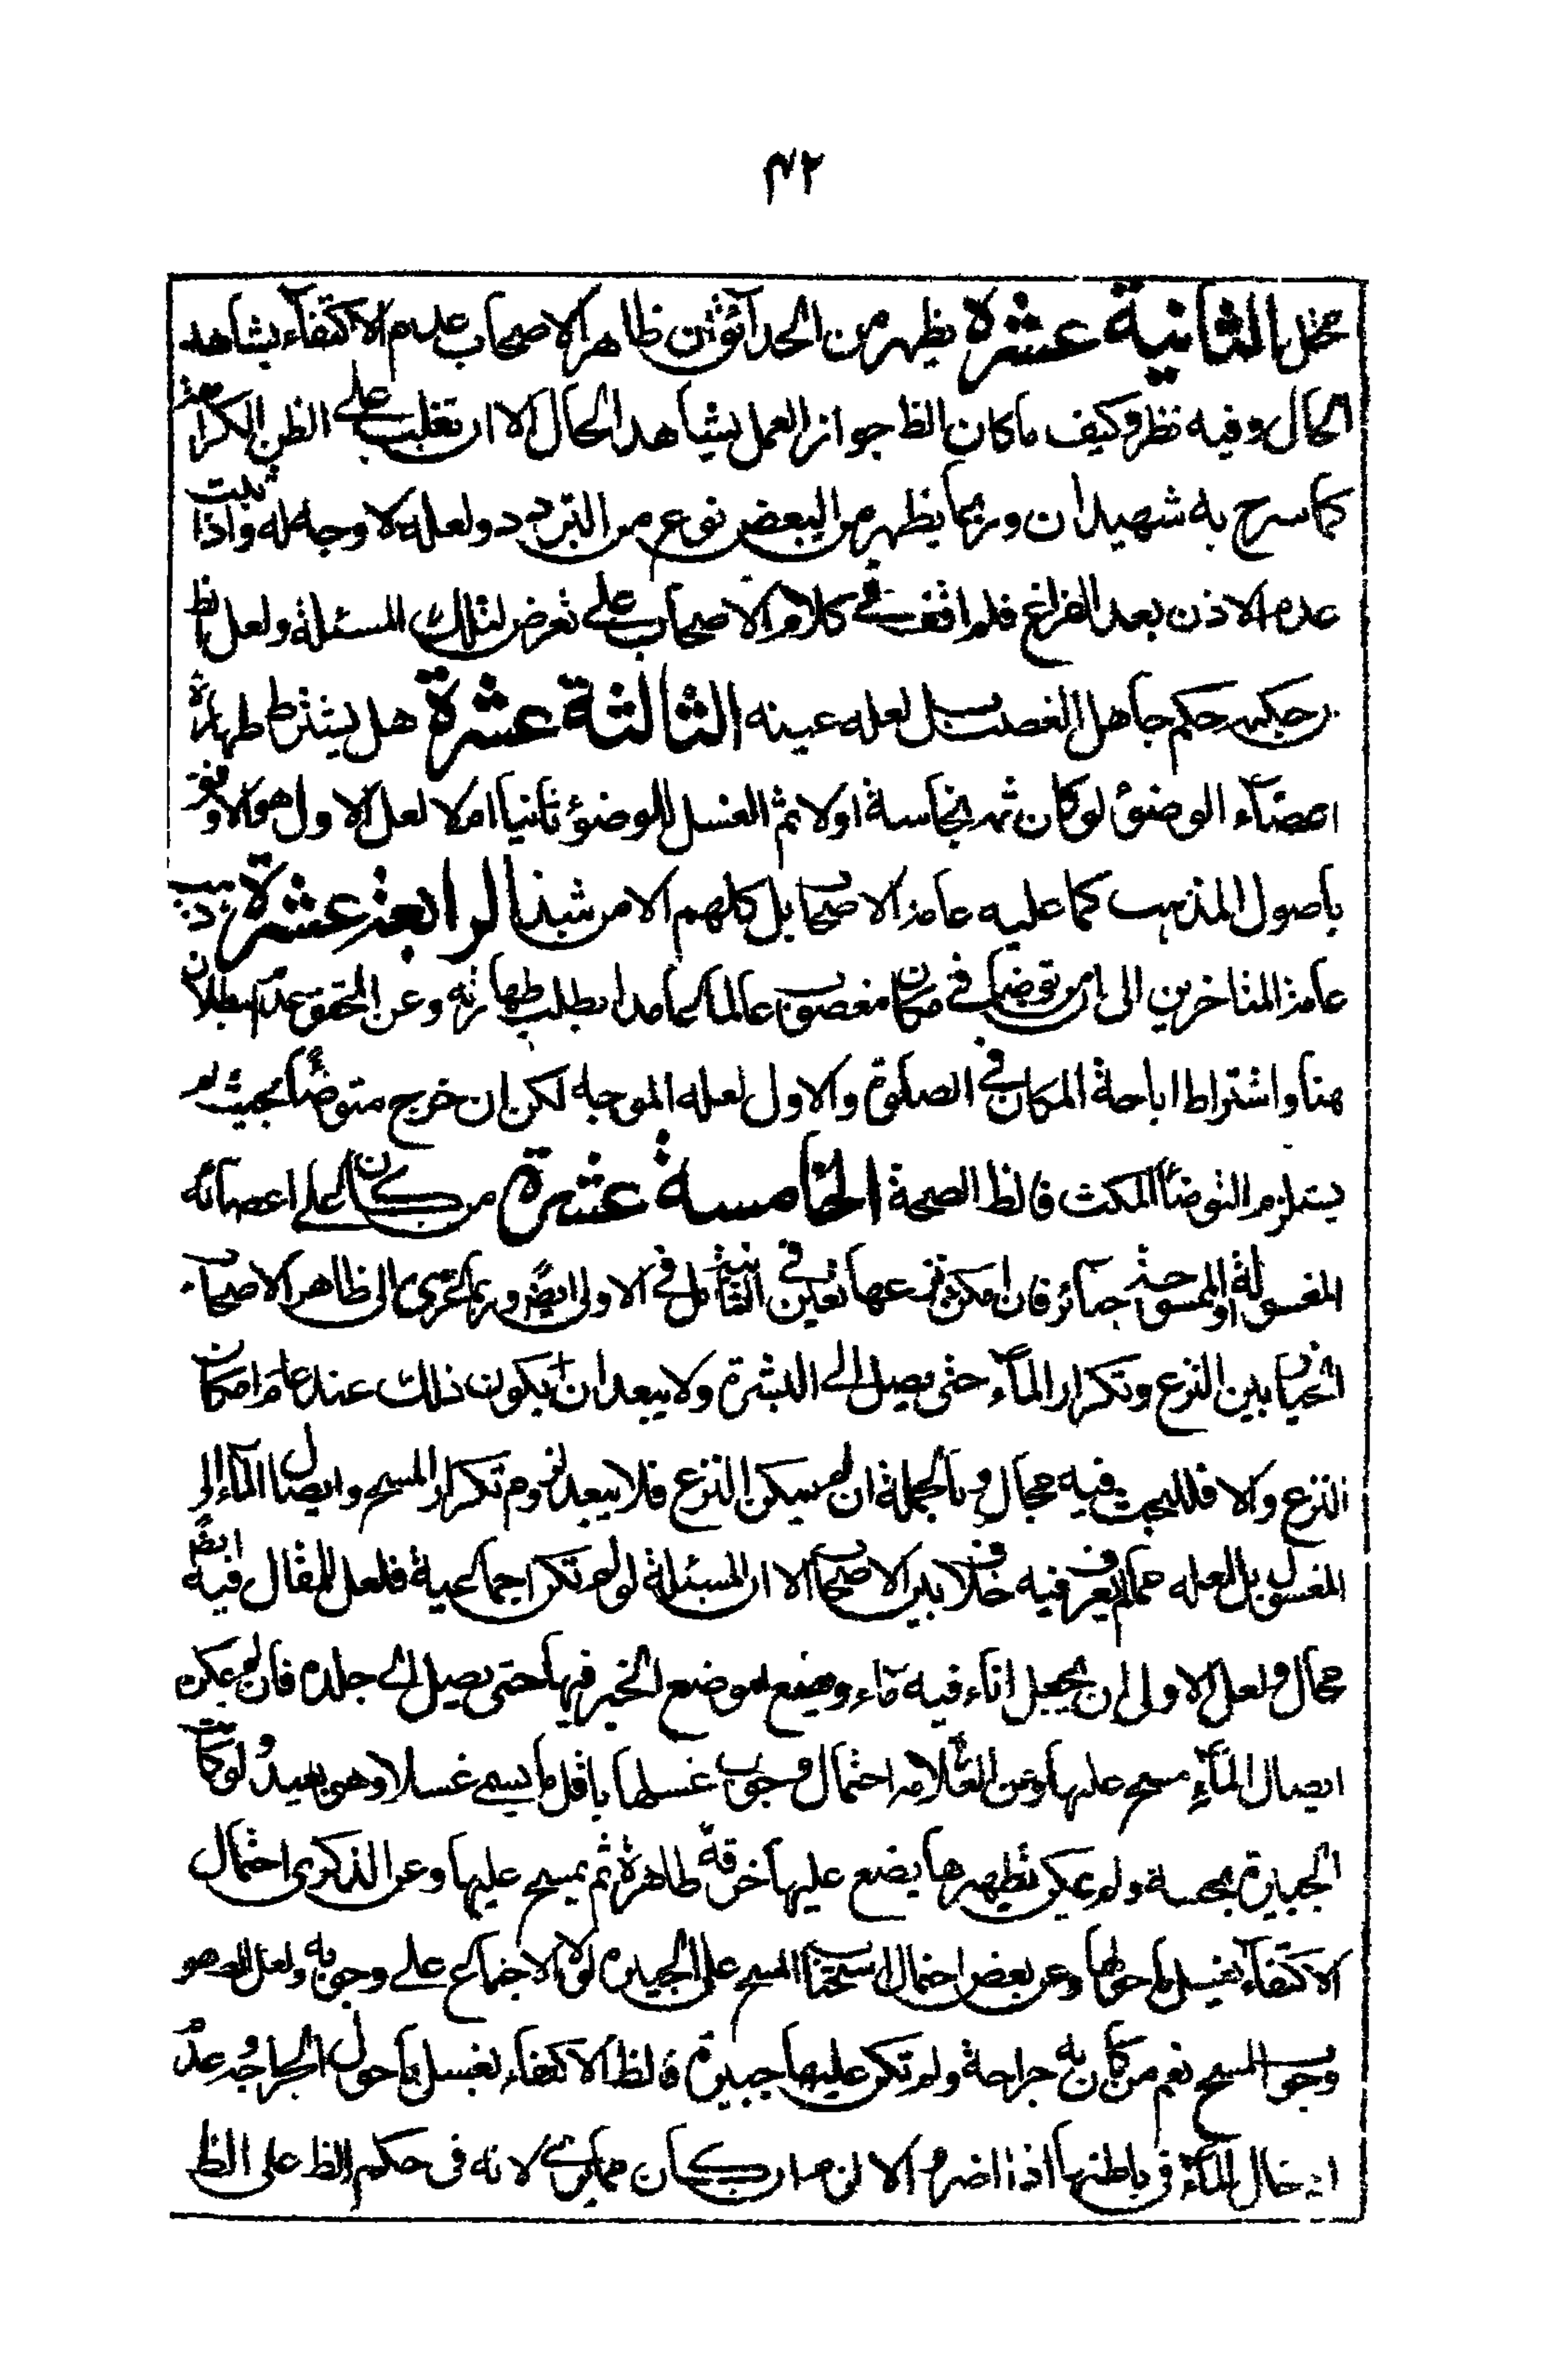 ۴۲
محمل الثانية عشرة يظهر من الحدائق ان ظاهر الاصحاب عدم الاكتفاء بشاهد
الحال وفيه نظر وكيف ما كان الظ جواز العمل بشاهد الحال الا ان تغلب على الظن الكراهة
كما سرح به شهيدان وربما يظهر من البعض نوع من التردد ولعله لا وجه له واذا ثبت
عدم الاذن بعد الفراغ فلم اقف في كلام الاصحاب على تعرض لتلك المسئلة ولعل الظ
حكمه حكم جاهل الغصب بل لعله عينه الثالثة عشرة هل يشترط طهارة
اعضاء الوضوء لو كان نجاسة اولا ثم الغسل للوضوء ثانيا ام لا لعل الاول هو الاوفق
باصول المذهب كما عليه عامة الاصحاب بل كلهم الا من شذ الرابعة عشرة ذهب
عامة المتاخرين الى ان من توضا في مكان مغصوب عالما عامدا بطلت طهارته وعن المحقق عدم البطلان
هنا واشتراط اباحة المكان في الصلوة والاول لعله الموجه لكن ان خرج متوضأ بحيث لم
يستلزم التوضأ المكث فالظ الصحة الخامسة عشرة من كان على اعضائه
المغسولة او الممسوحة جبائر فان امكن نزعها تعين في الثانية بل في الاولى ايضا وربما عزى الى ظاهر الاصحاب
التخيير بين النزع وتكرار الماء حتى يصل الى البشرة ولا يبعد ان يكون ذلك عند عدم امكان
النزع والا فللبحث فيه مجال وبالجملة ان لم يمكن النزع فلا يبعد لزوم تكرار المسح وايصال الماء الى
المغسول بل لعله مما لم يعرف فيه خلاف بين الاصحاب الا ان المسئلة لو لم تكن اجماعية فلعل للمقال فيه ايضا
مجال ولعل الاولى ان يجعل اناء فيه ماء ويضع موضع الجبر فيها حتى يصل الى جلده فان لم يمكن
ايصال الماء مسح عليها وعن العلامه احتمال وجوب غسلها باقل ما يسمى غسلا وهو بعيد ولو كانت
الجبيرة نجسة ولم يمكن تطهيرها يضع عليها خرقة طاهرة ثم يمسح عليها وعن الذكرى احتمال
الاكتفاء بغسل ما حولها وعن بعض احتمال استحباب المسح على الجبيرة لولا الاجماع على وجوبه ولعل
وجوب المسح نعم من كان به جراحة ولم تكن عليها جبيرة فالظ الاكتفاء بغسل ما حول الجراح وعدم
ادخال الماء في باطنها اذا اضر الا ان صار كان مما يرى لانه في حكم الظ على الظ